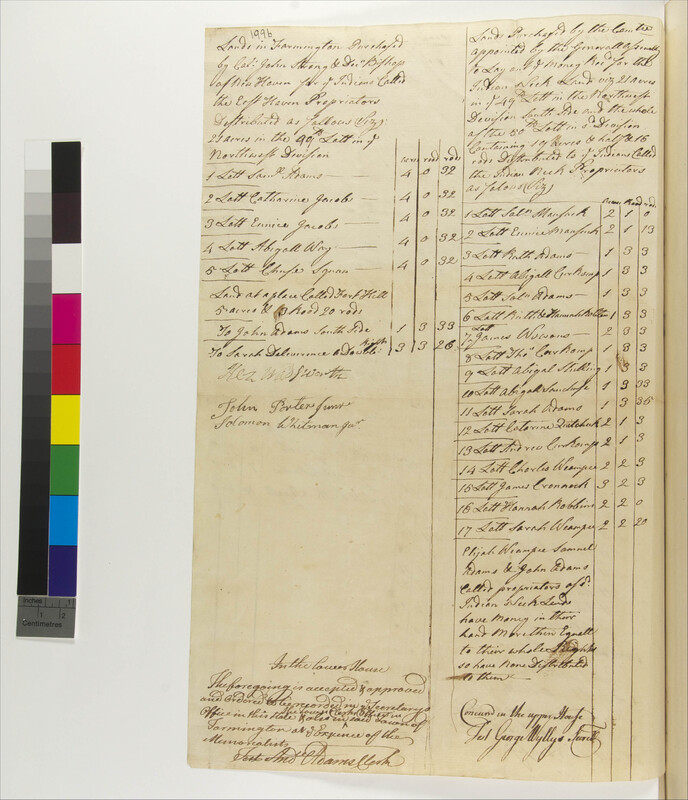 1996
Lands in Farmington Purchased
by Cap.t John Strong & Dec.n Bishop
of New Haven for ye Indians Called
the East Haven Propriators
Distributed as follows (Viz)
21 acres in the 49th Lott in ye
Northwest Division
acres rood rods
1 Lott Sam.ll Adams — 4 0 32
2 Lott Catharine Jacobs — 4 0 32
3 Lott Eunice Jacobs — 4 0 32
4 Lott Abigall Way — 4 0 32
5 Lott Chuse Squan — 4 0 32
Land at a place Called Fort Hill
5 acres & 3 Rood 20 rods
To John Adams South Side 1 3 33
To Sarah Deliverence a Double Right 3 3 26
Hez Wadsworth
John Porter Junr
Solomon Whitman Jur.
In the Lower House
The foregoing is accepted & approved
and ordered to be recorded in ye Secretarys
Office in this State & also in the Town Clerks Office in said Town of
Farmington at ye Expence of the
Memorialists
Test And.w Adams Clerk
Lands Purchased by the Comtee
appointed by the Generall Assembly
to Lay out ye Money Recd for the
Indian Neck Land viz 21 acres
in ye 49th Lott in the Northwest
Division South Side and the whole
of the 50th Lott in sd Division
Containing 19 acres & half & 16
rods Distributed to ye Indians Called
the Indian Neck Propriators
as follows (Viz)
Acres Rood rods
1 Lott Sol.n Mausuck 2 1 0
2 Lott Eunice Mausuck 2 1 13
3 Lott Ruth Adams — 1 3 3
4 Lott Abigall Curkomp 1 3 3
5 Lott Sol.n Adams — 1 3 3
6 Lott Ruth & Hannah Robbins 1 3 3
7 Lott James Wowows — 2 3 3
8 Lott Tho.s Curkomp 1 3 3
9 Lott Abigal 1 3 3
10 Lott Abigall 1 3 33
11 Lott Sarah Adams 1 3 36
12 Lott Caterine 2 1 3
13 Lott Andrew Curkomp 2 1 3
14 Lott Charles Wampee 2 2 3
15 Lott James 3 2 3
16 Lott Hannah Robbins 2 2 0
17 Lott Sarah Wampee 2 2 20
Elijah Wampee Samuel
Adams & John Adams
Called propriators of sd
Indian Neck Lands
have Money in their
hand More then Equall
to their whole Rights
so have None Distributed
to them —
Concurd in the upper House
Test George Wyllys Secret.y
inches 1 2
Centimetres